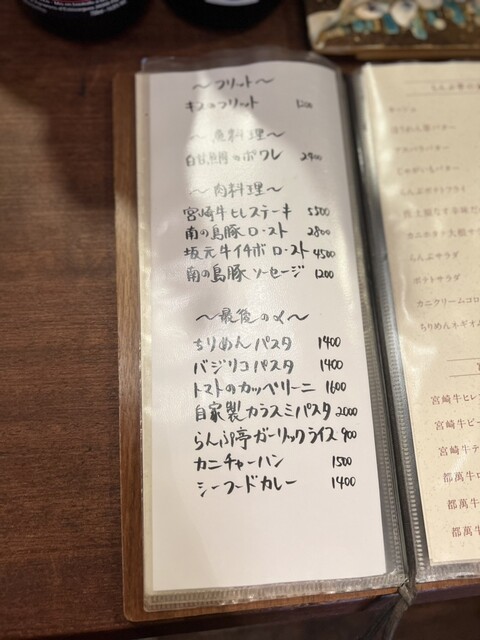 ～フリット～
キスのフリット 1200
～魚料理～
白甘鯛のポワレ 2900
～肉料理～
宮崎牛ヒレステーキ 5500
南の島豚ロースト 2800
坂元牛イチボロースト 4500
南の島豚ソーセージ 1200
～最後の〆～
ちりめんパスタ 1400
バジリコパスタ 1400
トマトのカッペリーニ 1600
自家製カラスミパスタ 2000
らんぷ亭ガーリックライス 900
カニチャーハン 1500
シーフードカレー 1400
じゃがいもバター
らんぷポテトフライ
らんぷサラダ
ポテトサラダ
カニクリームコロ
ちりめんネギオム
宮崎牛ヒレ
宮崎牛ビー
宮崎牛テ
都萬牛ロ
都萬牛
都萬牛